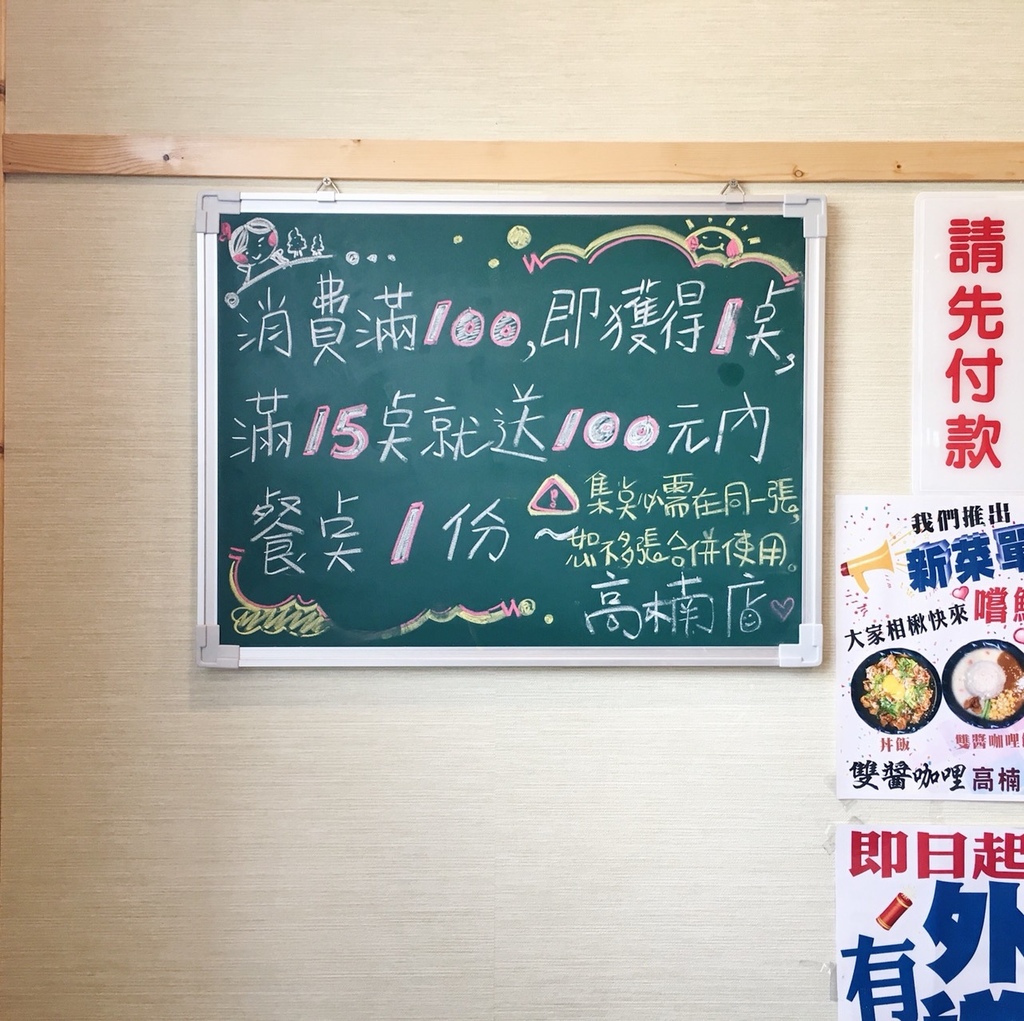 消費滿100,即獲得1点,
滿15点就送100元內
餐点1份
集点必需在同一張,
恕不多張合併使用。
高楠店
請先付款
我們推出
新菜單
大家相楸快來嚐鮮
丼飯
雙醬咖哩
雙醬咖哩高楠
即日起
外
有